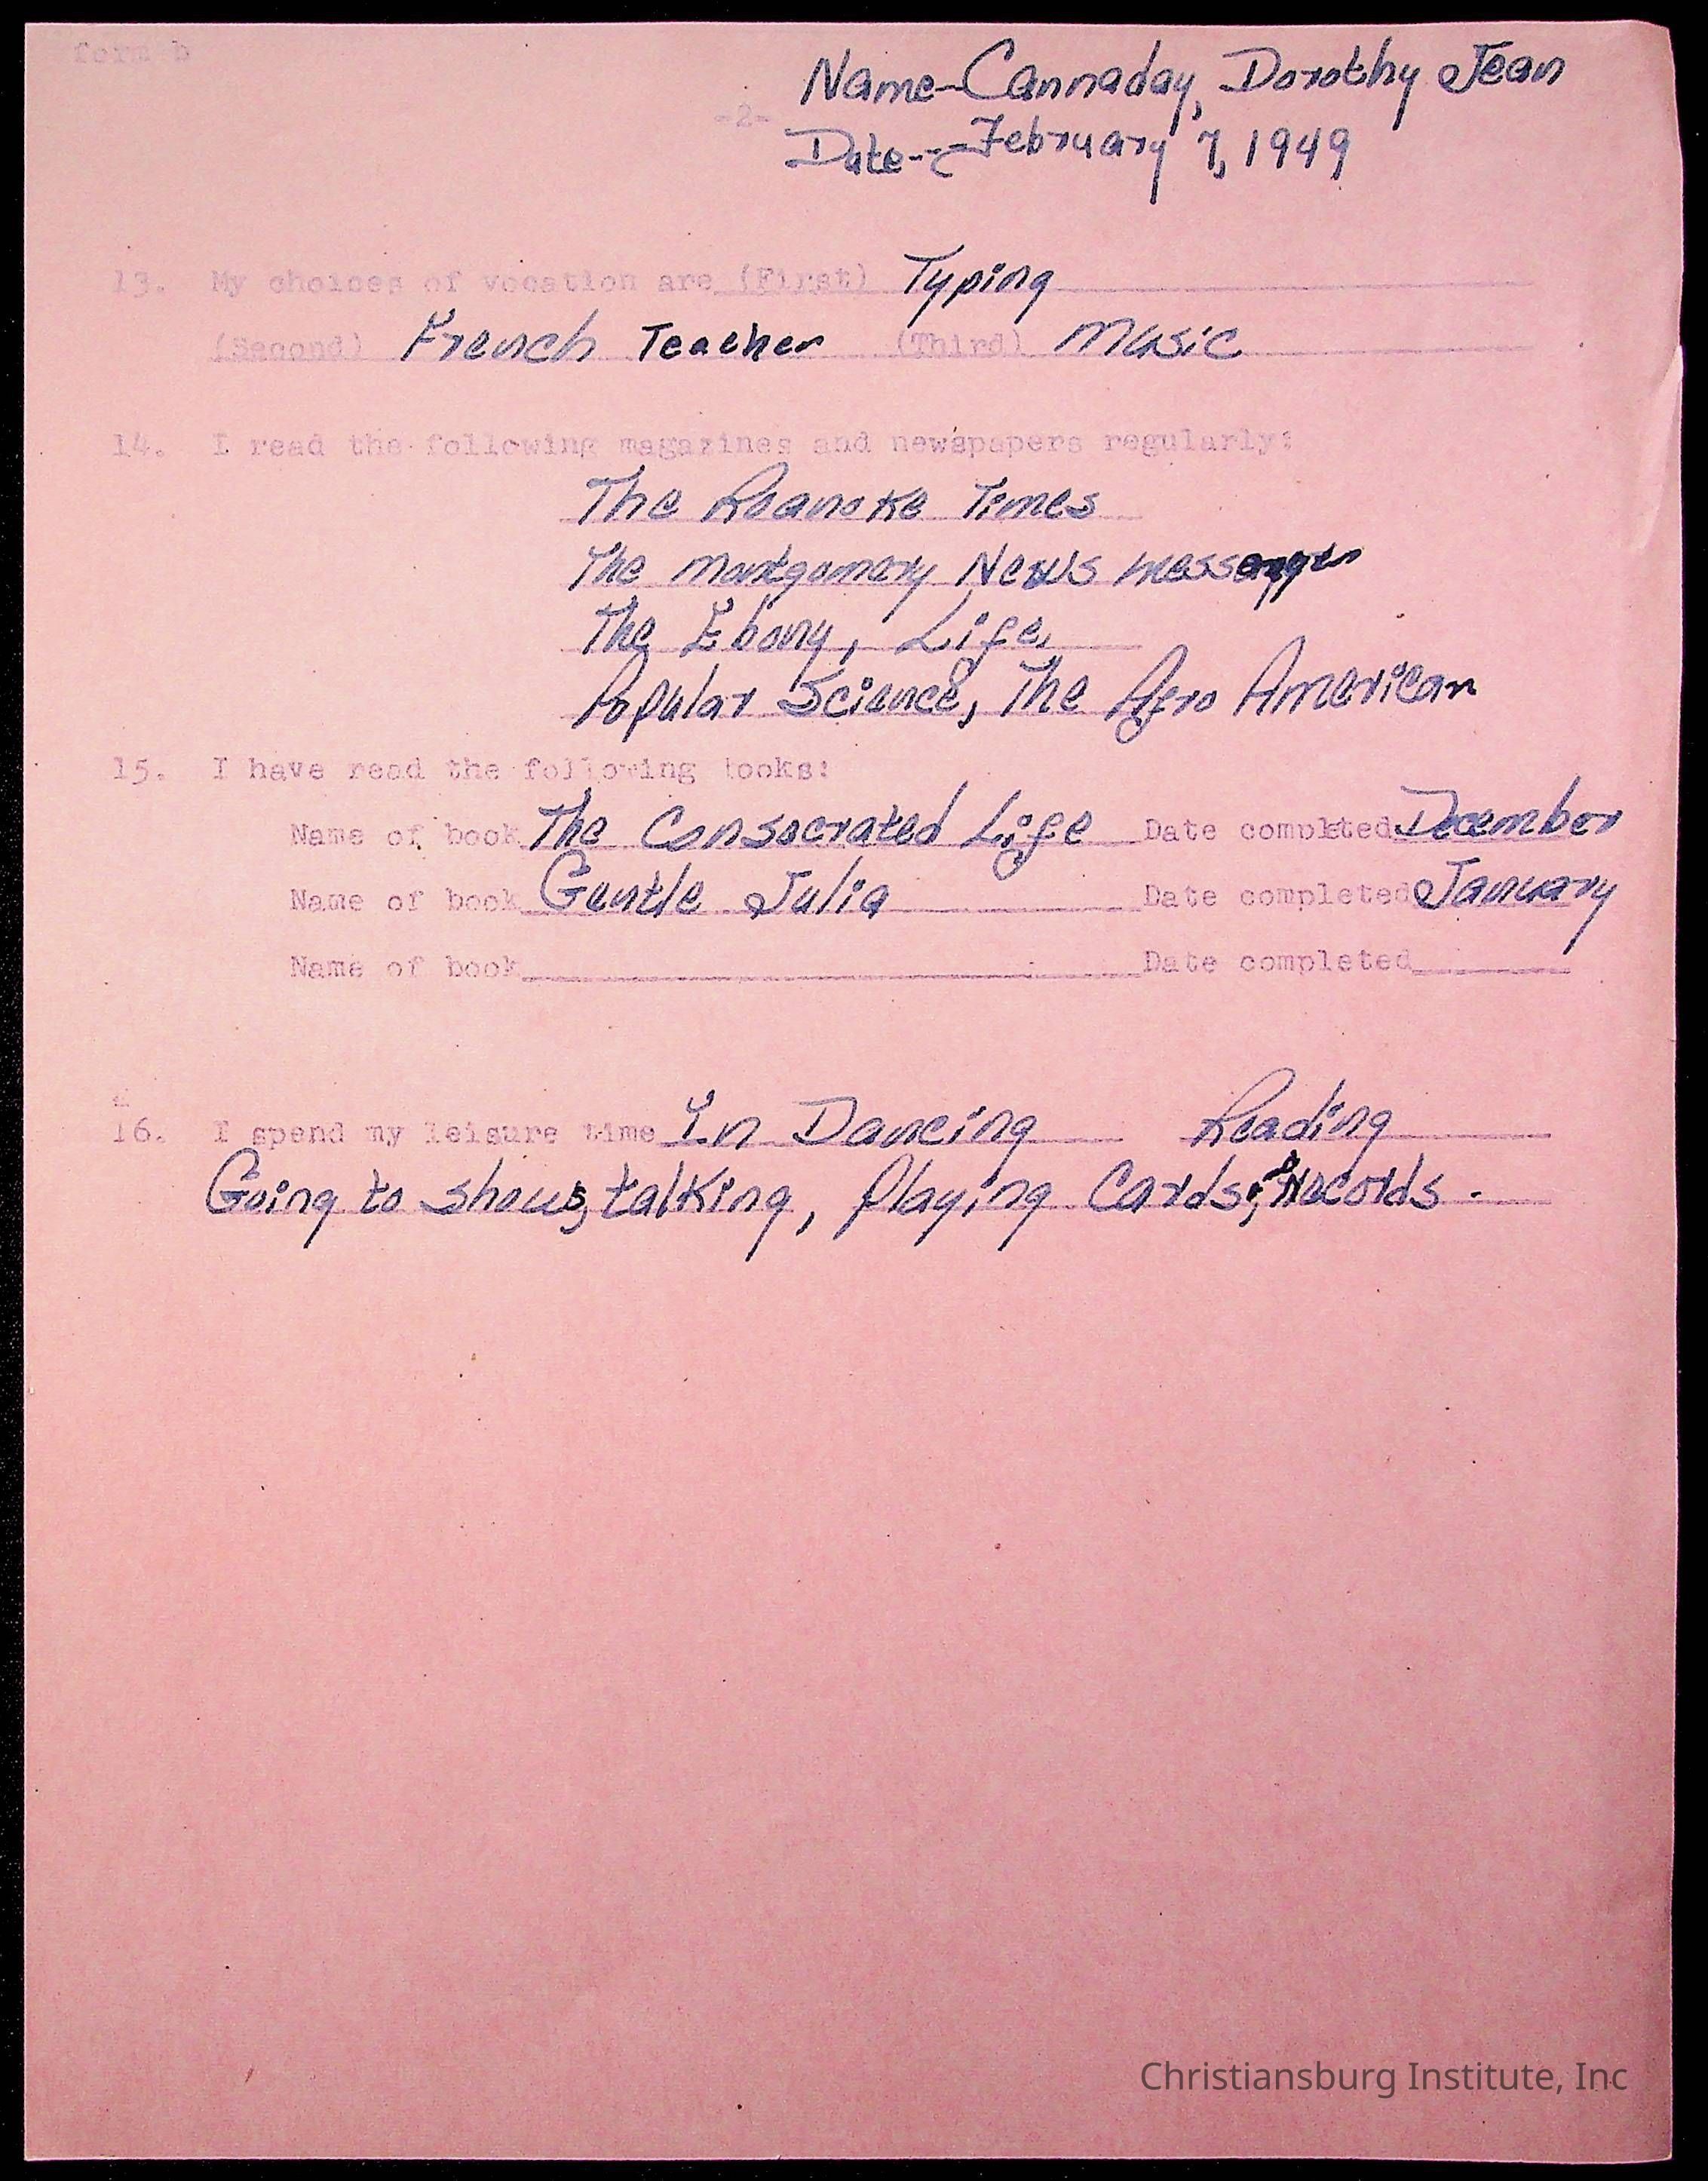 form b
Name-Cannaday, Dorothy Jean
-2-
Date--February 7, 1949
13. My choices of vocation are (First) Typing
(Second) French Teacher (Third) Music
14. I read the following magazines and newspapers regularly:
The Roanoke Times
The Montgomery News messenger
The Ebony, Life,
Popular Science, The Afro American
15. I have read the following books:
Name of book The Consecrated Life Date completed December
Name of book Gentle Julia Date completed January
Name of book Date completed
16. I spend my leisure time In Dancing Reading
Going to shows, talking, playing Cards, & records.
Christiansburg Institute, Inc